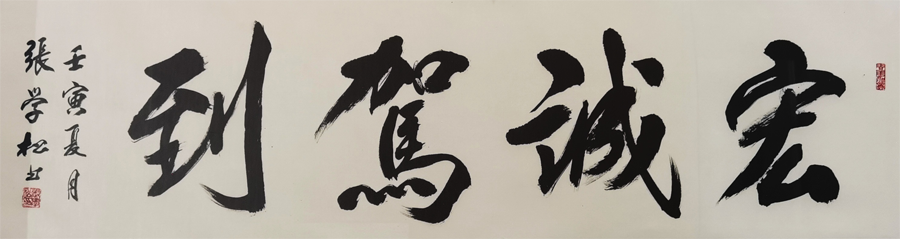 宏誠駕到
壬寅夏月
張学松书